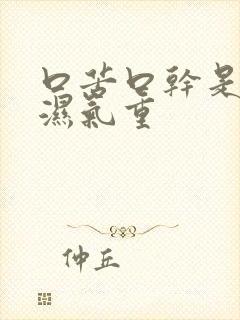 口苦口幹是
濕氣重
仲丘